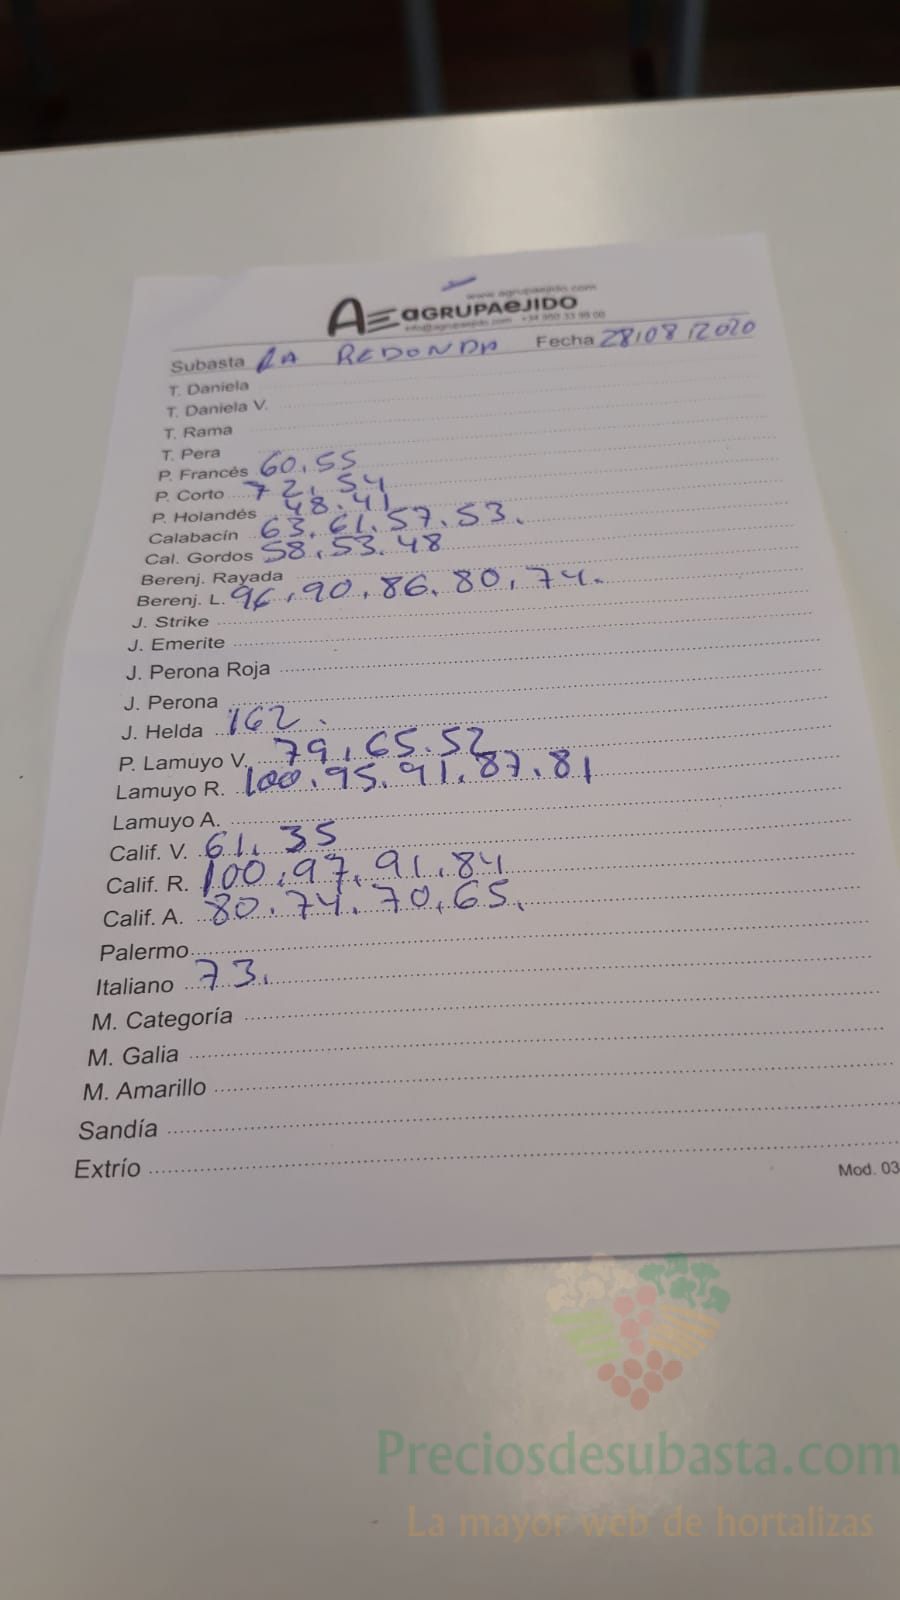 www.agrupaejido.com
AGRUPAEJIDO
info@agrupaejido.com +34 950 33 99 00
Subasta LA REDONDA Fecha 28/08/2020
T. Daniela
T. Daniela V.
T. Rama
T. Pera
P. Francés 60. 55
P. Corto 72. 54
P. Holandés 48. 41
Calabacín 63. 61. 57. 53.
Cal. Gordos 58. 53. 48
Berenj. Rayada
Berenj. L. 96. 90. 86. 80. 74.
J. Strike
J. Emerite
J. Perona Roja
J. Perona
J. Helda 162.
P. Lamuyo V. 79. 65. 52
Lamuyo R. 100. 95. 91. 87. 81
Lamuyo A.
Calif. V. 61. 35
Calif. R. 100. 97. 91. 84
Calif. A. 80. 74. 70. 65.
Palermo
Italiano 73.
M. Categoría
M. Galia
M. Amarillo
Sandía
Extrío
Mod. 03
Preciosdesubasta.com
La mayor web de hortalizas